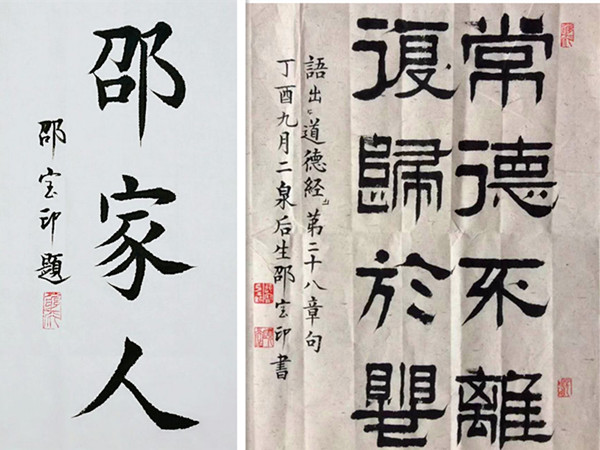 邵家人
邵宝印题
常德不離
復歸於嬰
語出道德經第二十八章句
丁酉九月二泉后生邵宝印書